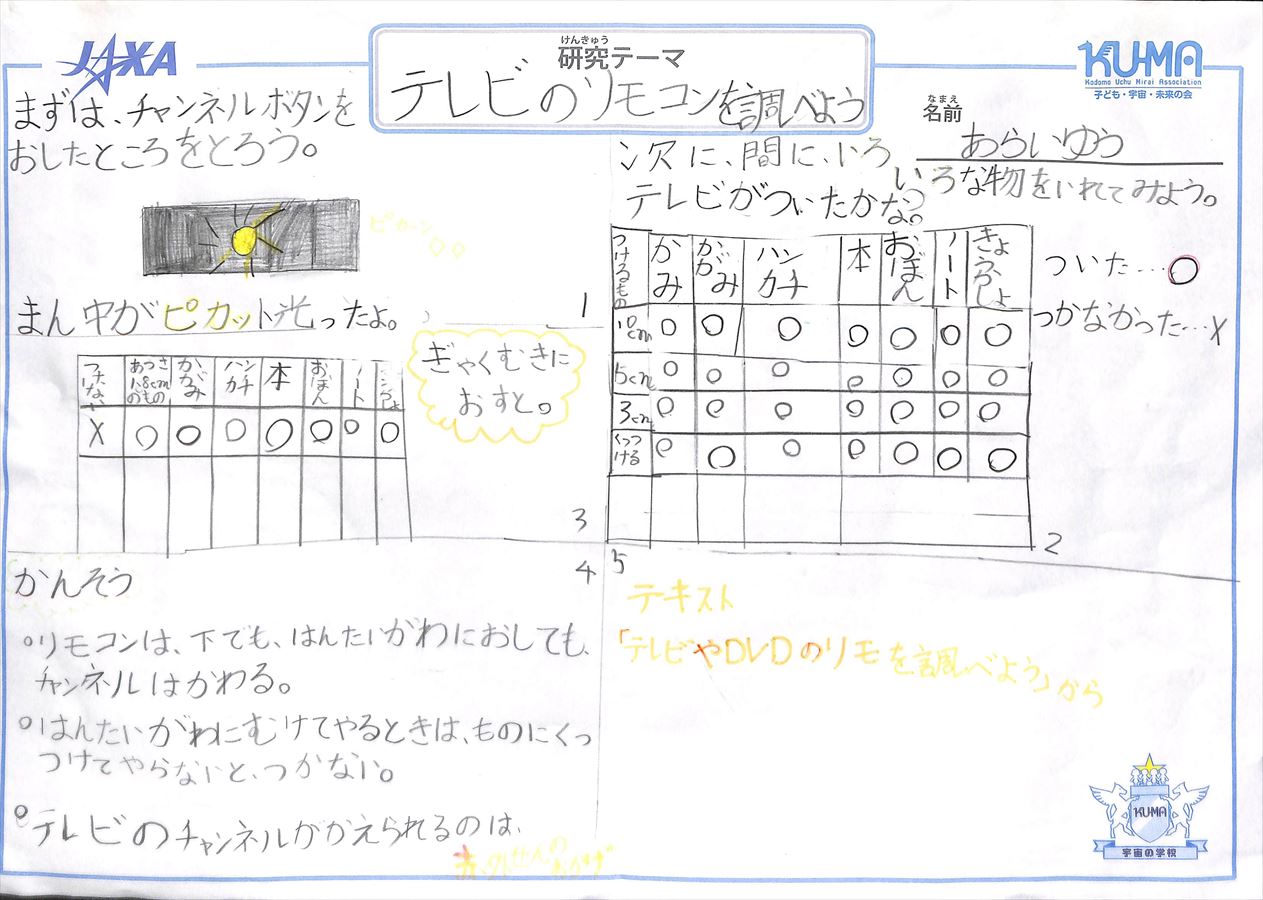 JAXA
けんきゅう
研究テーマ
テレビのリモコンを調べよう
KU-MA
Kodomo Uchu Mirai Association
子ども・宇宙・未来の会
なまえ
名前
あらいゆう
まずは、チャンネルボタンを
おしたところをとろう。
ピカーン
まん中がピカット光ったよ。
1
次に、間に、いろ
いろな物をいれてみよう。
テレビがついたかな。
つけるもの かみ かがみ ハンカチ 本 おぼん ノート きょうかしょ
10cm ○ ○ ○ ○ ○ ○ ○
5cm ○ ○ ○ ○ ○ ○ ○
3cm ○ ○ ○ ○ ○ ○ ○
くっつける ○ ○ ○ ○ ○ ○ ○
ついた…○
つかなかった…×
2
ぎゃくむきに
おすと。
つけない あつさ1.8cmのもの かがみ ハンカチ 本 おぼん ノート
× ○ ○ ○ ○ ○ ○ ○
3
4
かんそう
○リモコンは、下でも、はんたいがわにおしても、
チャンネルはかわる。
○はんたいがわにむけてやるときは、ものにくっ
つけてやらないと、つかない。
○テレビのチャンネルがかえられるのは、
赤外せんの
おかげ
5
テキスト
「テレビやDVDのリモを調べよう」から
KUMA
宇宙の学校